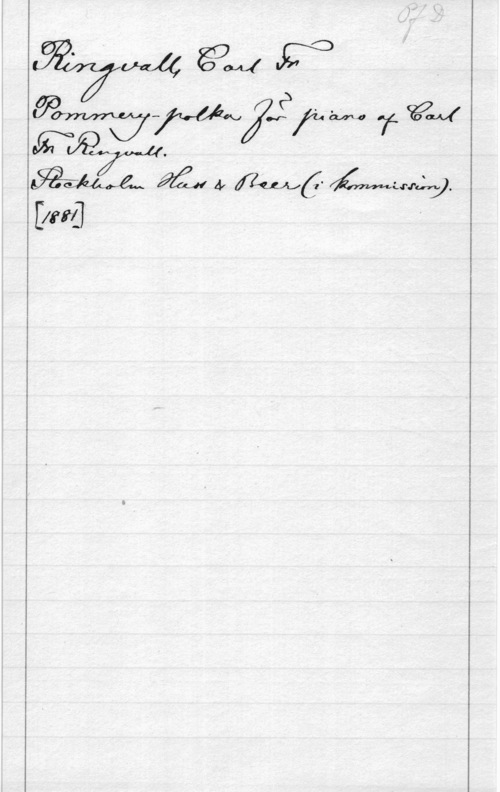 Pf D
Ringvall, Carl Fr
Pommery-polka för piano af Carl
Fr Ringvall.
Stockholm Huss & Beer (i kommission).
[1881]